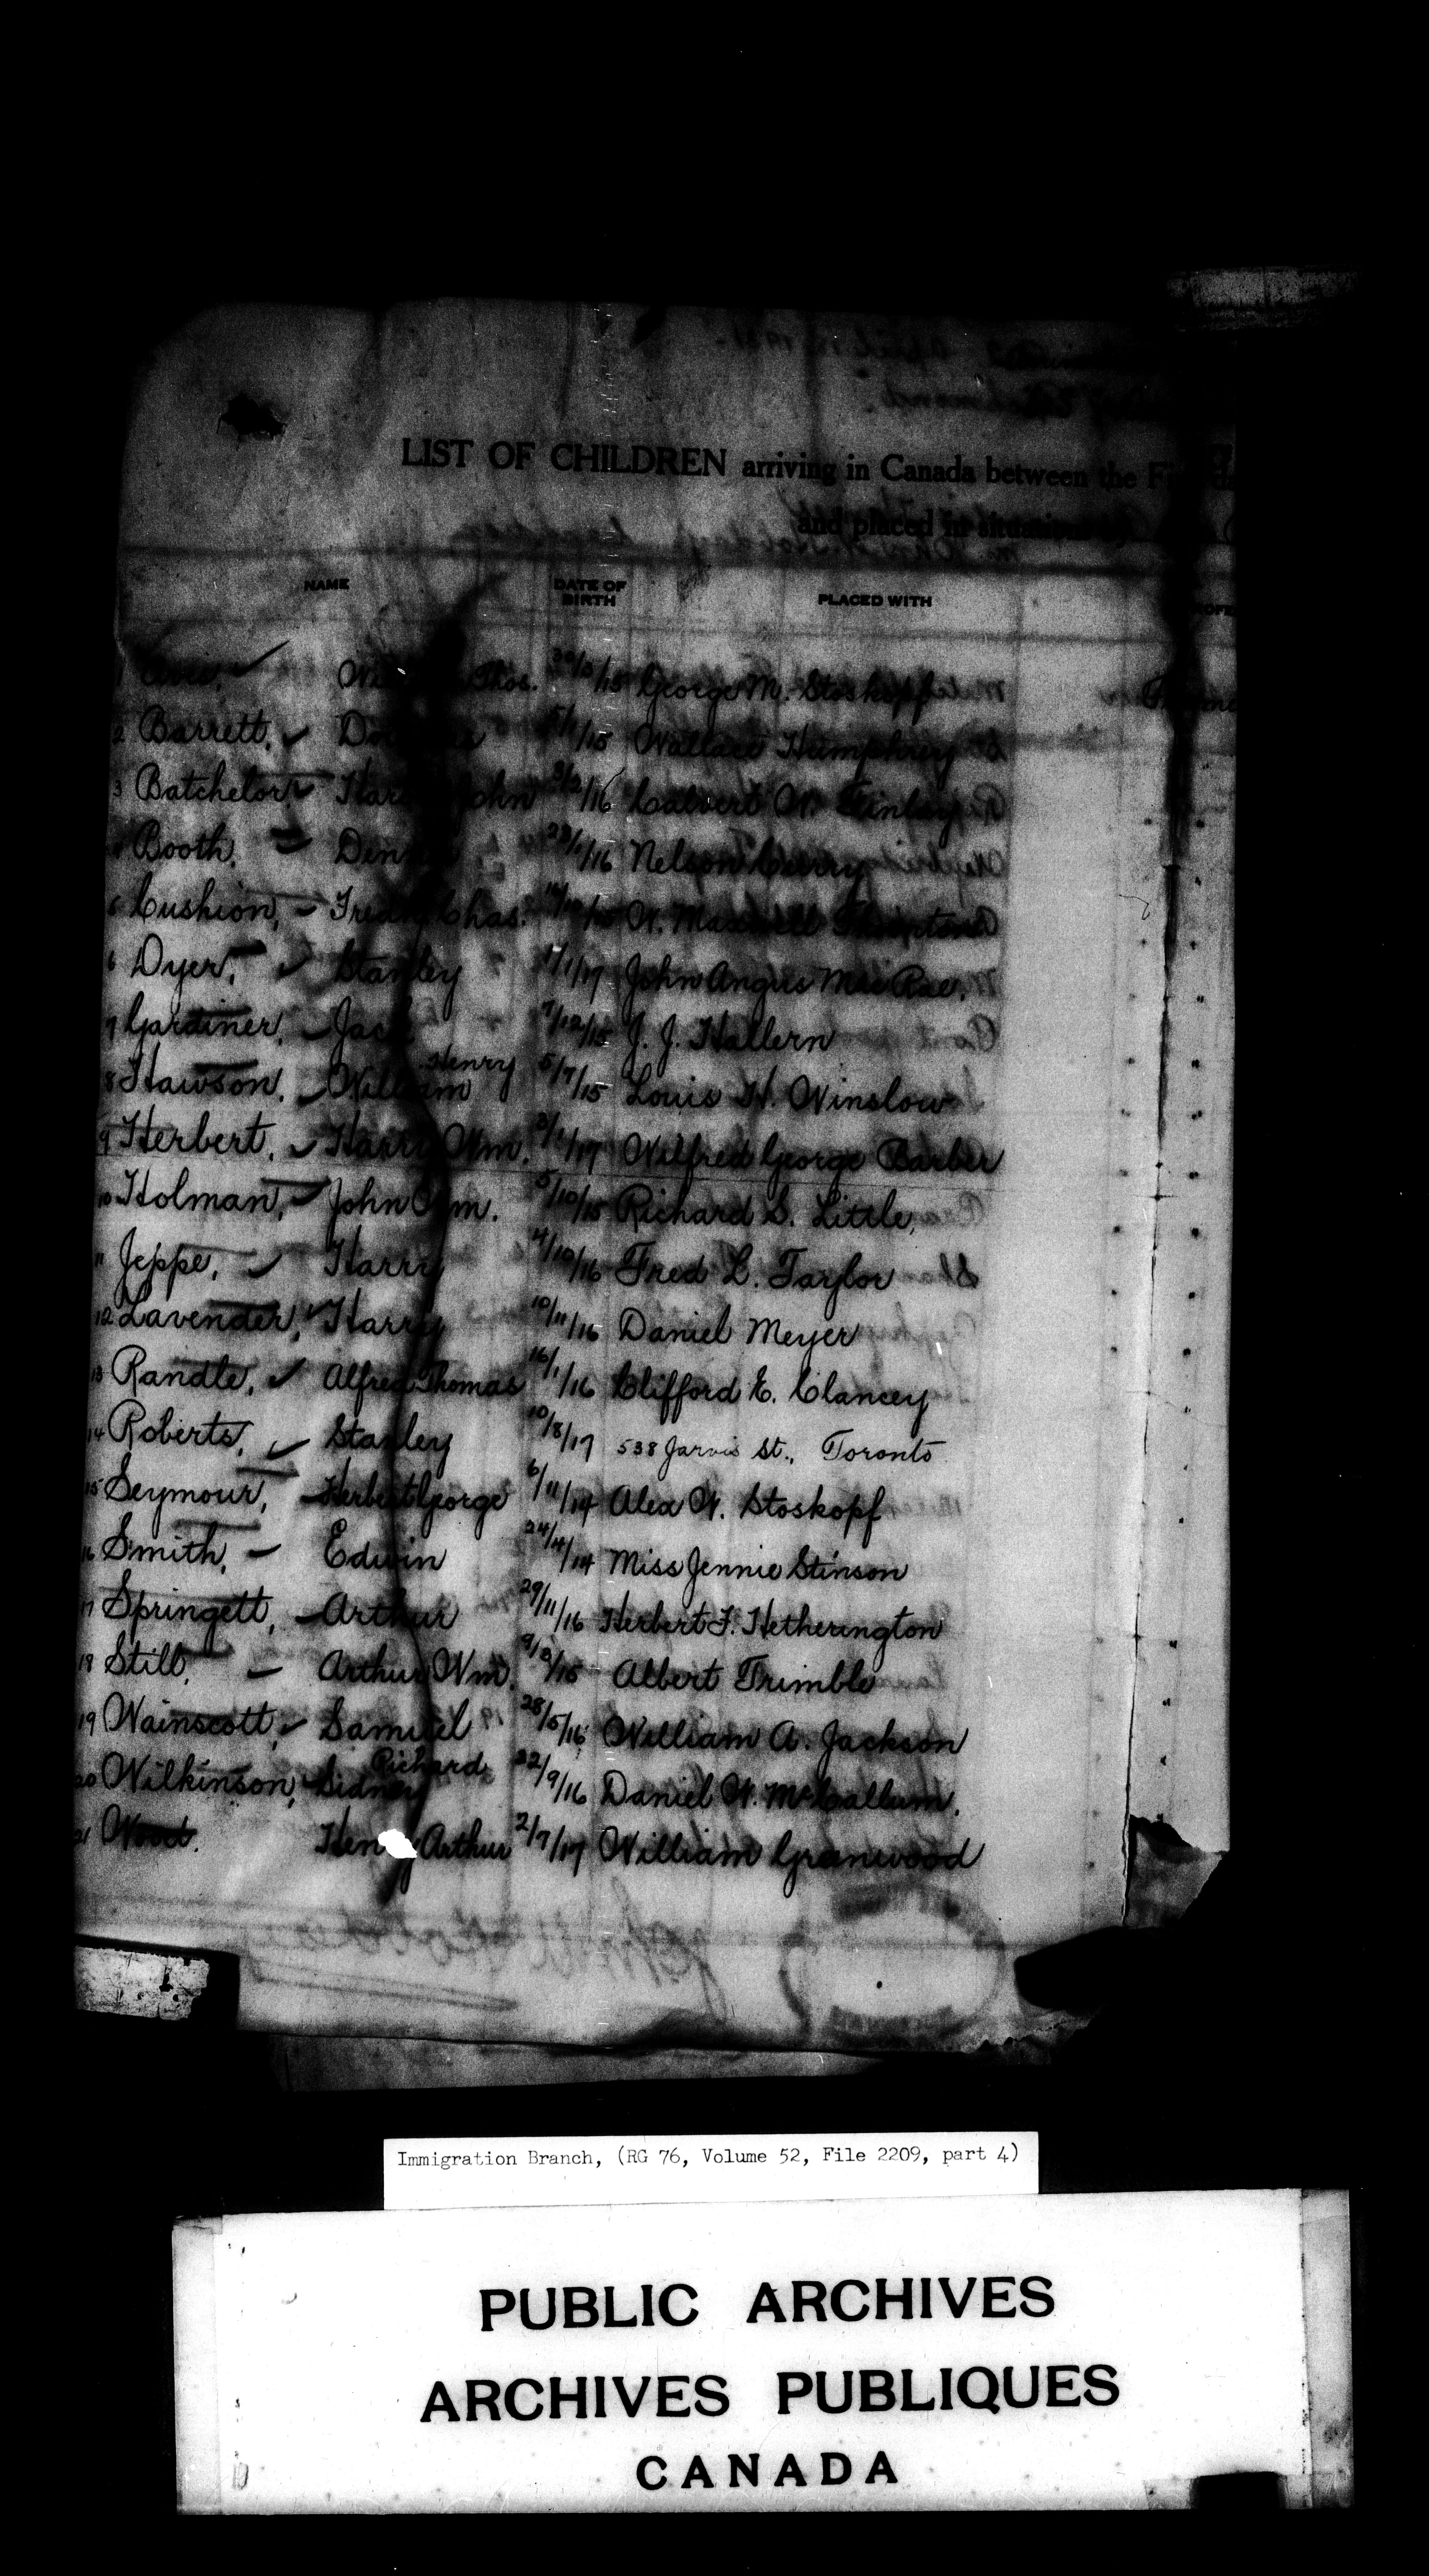 LIST OF CHILDREN arriving in Canada between the
and placed in situations by
NAME DATE OF BIRTH PLACED WITH
1 Thos. George M. Stoskopf
2 Barrett, 5/1/15 Wallace Humphrey
3 Batchelor John 3/2/16 Calvert W. Finlay
Booth, 23/1/16 Nelson Curry
5 Cushion, Chas. W. Maxwell
6 Dyer, Stanley 1/1/17 John Angus MacRae,
7 Gardiner, Jack 7/12/15 J. J. Hallern
8 Hawson, William Henry 5/7/15 Louis H. Winslow
9 Herbert, Harry Wm. 3/1/17 Wilfred George Barber
10 Holman, John Wm. 5/10/15 Richard S. Little,
11 Jeppe, Harry 4/10/16 Fred L. Taylor
12 Lavender, Harry 10/11/16 Daniel Meyer
13 Randle, Alfred Thomas 16/1/16 Clifford E. Clancey
14 Roberts, Stanley 10/8/17 538 Jarvis St., Toronto
15 Seymour, Herbert George 6/11/14 Alex W. Stoskopf
16 Smith, Edwin 24/4/14 Miss Jennie Stinson
17 Springett, Arthur 29/11/16 Herbert F. Hetherington
18 Still, Arthur Wm. Albert Trimble
19 Wainscott, Samuel 28/5/16 William A. Jackson
20 Wilkinson, Sidney Richard 22/9/16 Daniel W. McCallum,
21 Wood. Henry Arthur 2/7/17 William Granwood
Immigration Branch, (RG 76, Volume 52, File 2209, part 4)
PUBLIC ARCHIVES
ARCHIVES PUBLIQUES
CANADA